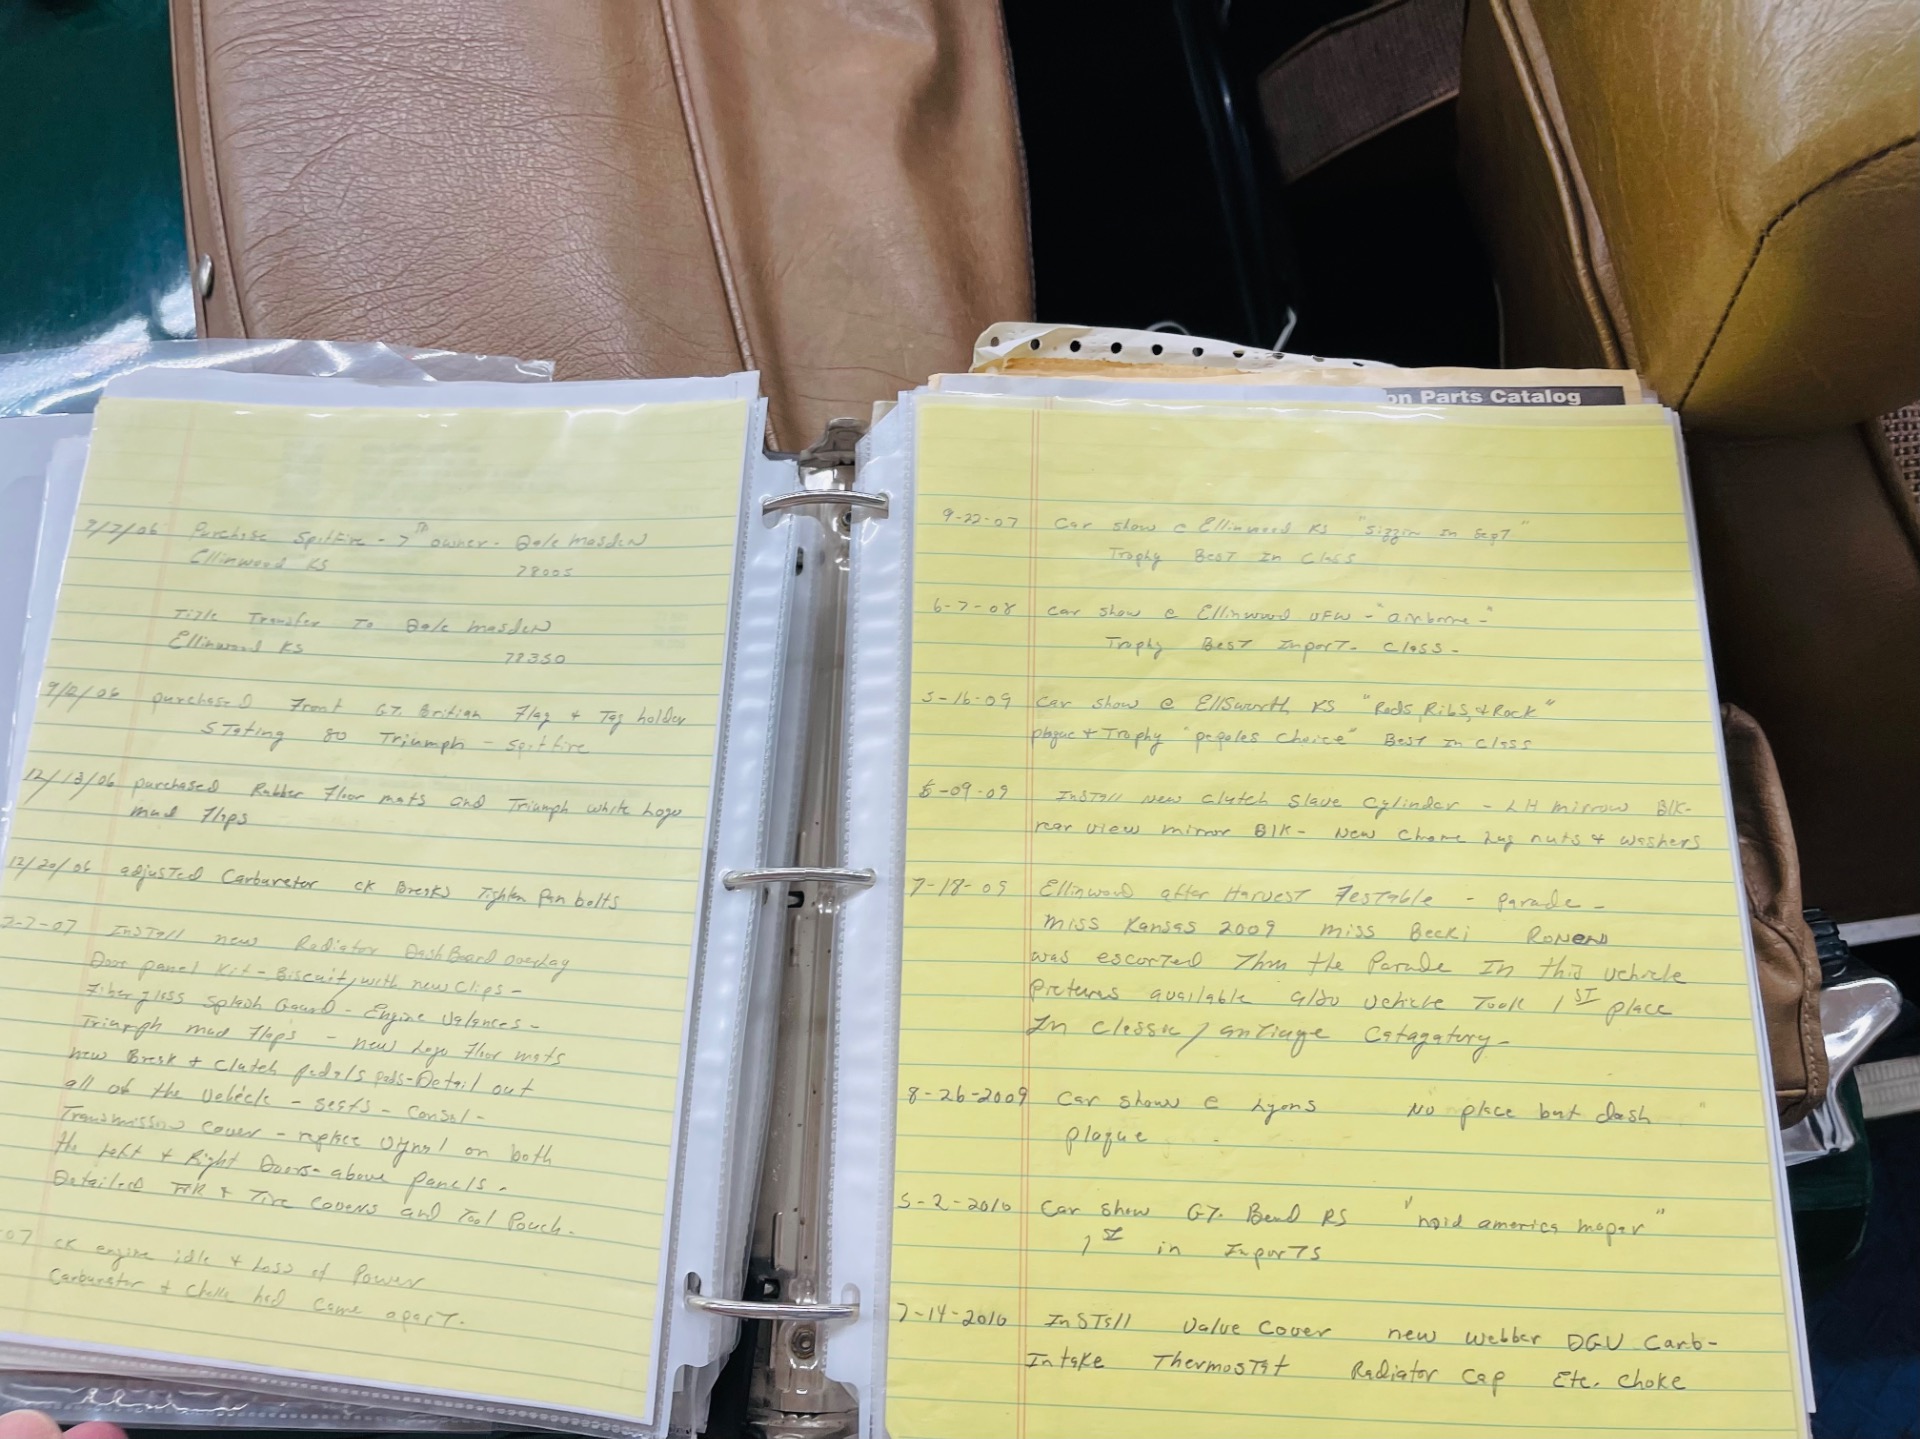 7/7/06 Purchase Spitfire - 7th owner - Dale Masden
Ellinwood KS 78005
Title Transfer To Dale Masden
Ellinwood KS 78350
9/2/06 purchased Front GT. British Flag + Tag holder
STating 80 Triumph - Spitfire
12/13/06 purchased Rubber Floor mats and Triumph white Logo
mud Flaps
12/20/06 adjusTed Carburetor ck Breaks Tighten Pan bolts
2-2-07 InSTall new Radiator DashBoard overlay
Door panel Kit - Biscuit, with new Clips -
Fiberglass Splash Guard - Engine Valances -
Triumph mud Flaps - new Logo Floor mats
new Break + Clutch pedals pads - Detail out
all of the Vehicle - seats - Consol -
Transmission Cover - replace Vynal on both
the Left + Right Doors - above panels -
Detailed TRK + Tire Covers and Tool Pouch -
07 ck engine idle + Loss of Power
Carburetor + Choke had Come aparT.
on Parts Catalog
9-22-07 Car show @ Ellinwood KS "Sizzin in SepT"
Trophy BesT In Class
6-7-08 Car show @ Ellinwood VFW - "airborne -"
Trophy BesT ImporT - Class -
5-16-09 Car show @ EllSworth KS "Rods, Ribs, + Rock"
plaque + Trophy "peoples Choice" BesT In Class
6-09-09 InSTall new Clutch Slave Cylinder - LH mirrow Blk-
rear view mirror Blk - New Chrome Lug nuts + washers
7-18-09 Ellinwood after HarvesT FesTable - parade -
miss Kansas 2009 miss Becki RoNeN
was escorTed Thru the Parade In this vehicle
Pictures available also vehicle Took 1ST place
In Classic / anTique Catagatory -
8-26-2009 Car show @ Lyons No place but dash
plaque
5-2-2010 Car show GT. Bend KS "mid america mopar"
1ST in ImporTS
7-14-2010 InSTall Valve Cover new webber DGV Carb-
Intake ThermosTat Radiator Cap Etc. Choke